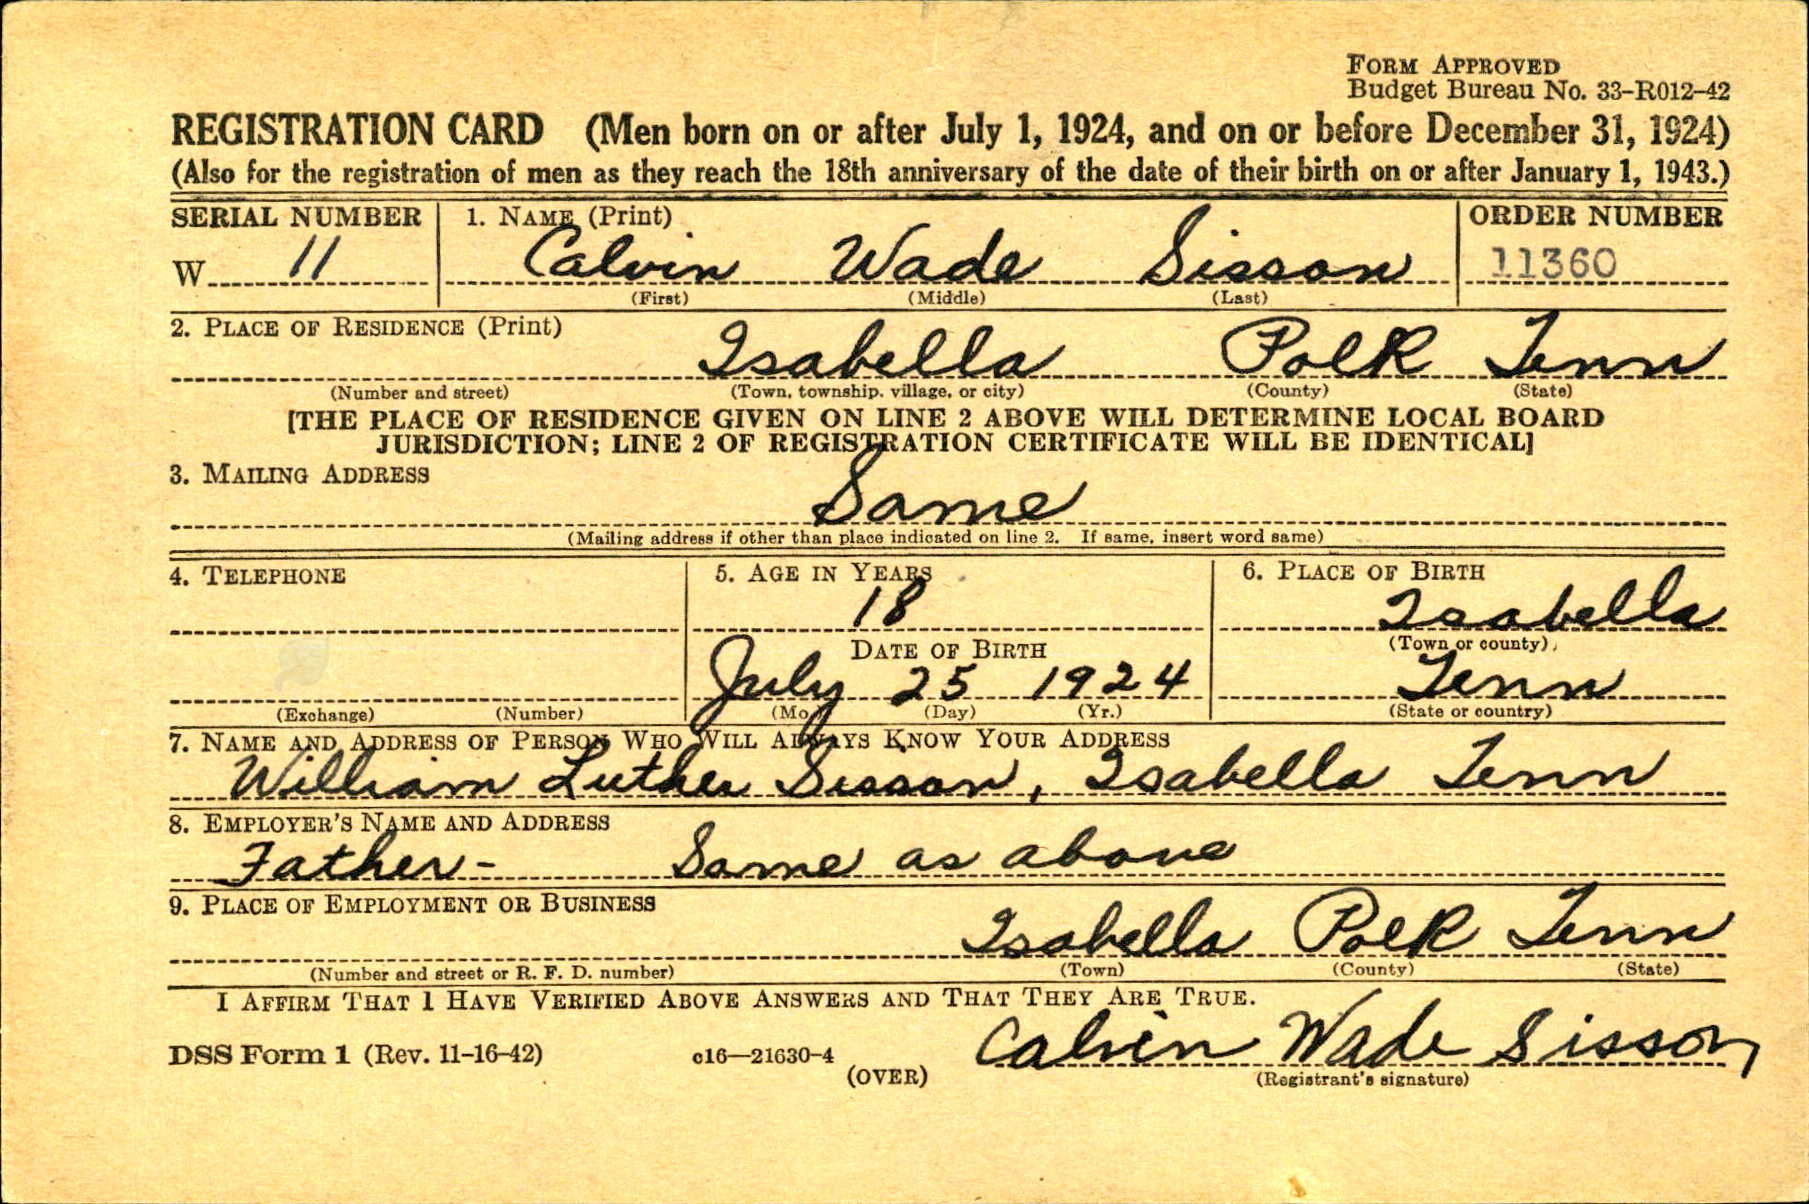 FORM APPROVED
Budget Bureau No. 33-R012-42
REGISTRATION CARD (Men born on or after July 1, 1924, and on or before December 31, 1924)
(Also for the registration of men as they reach the 18th anniversary of the date of their birth on or after January 1, 1943.)
SERIAL NUMBER 1. NAME (Print) ORDER NUMBER
W 11 Calvin Wade Sisson 11360
(First) (Middle) (Last)
2. PLACE OF RESIDENCE (Print)
Isabella Polk Tenn
(Number and street) (Town, township, village, or city) (County) (State)
[THE PLACE OF RESIDENCE GIVEN ON LINE 2 ABOVE WILL DETERMINE LOCAL BOARD
JURISDICTION; LINE 2 OF REGISTRATION CERTIFICATE WILL BE IDENTICAL]
3. MAILING ADDRESS
Same
(Mailing address if other than place indicated on line 2. If same, insert word same)
4. TELEPHONE 5. AGE IN YEARS 6. PLACE OF BIRTH
18 Isabella
DATE OF BIRTH (Town or county)
July 25 1924 Tenn
(Exchange) (Number) (Mo.) (Day) (Yr.) (State or country)
7. NAME AND ADDRESS OF PERSON WHO WILL ALWAYS KNOW YOUR ADDRESS
William Luther Sisson, Isabella Tenn
8. EMPLOYER'S NAME AND ADDRESS
Father- Same as above
9. PLACE OF EMPLOYMENT OR BUSINESS
Isabella Polk Tenn
(Number and street or R. F. D. number) (Town) (County) (State)
I AFFIRM THAT I HAVE VERIFIED ABOVE ANSWERS AND THAT THEY ARE TRUE.
Calvin Wade Sisson
DSS Form 1 (Rev. 11-16-42) c16—21630-4
(OVER) (Registrant's signature)